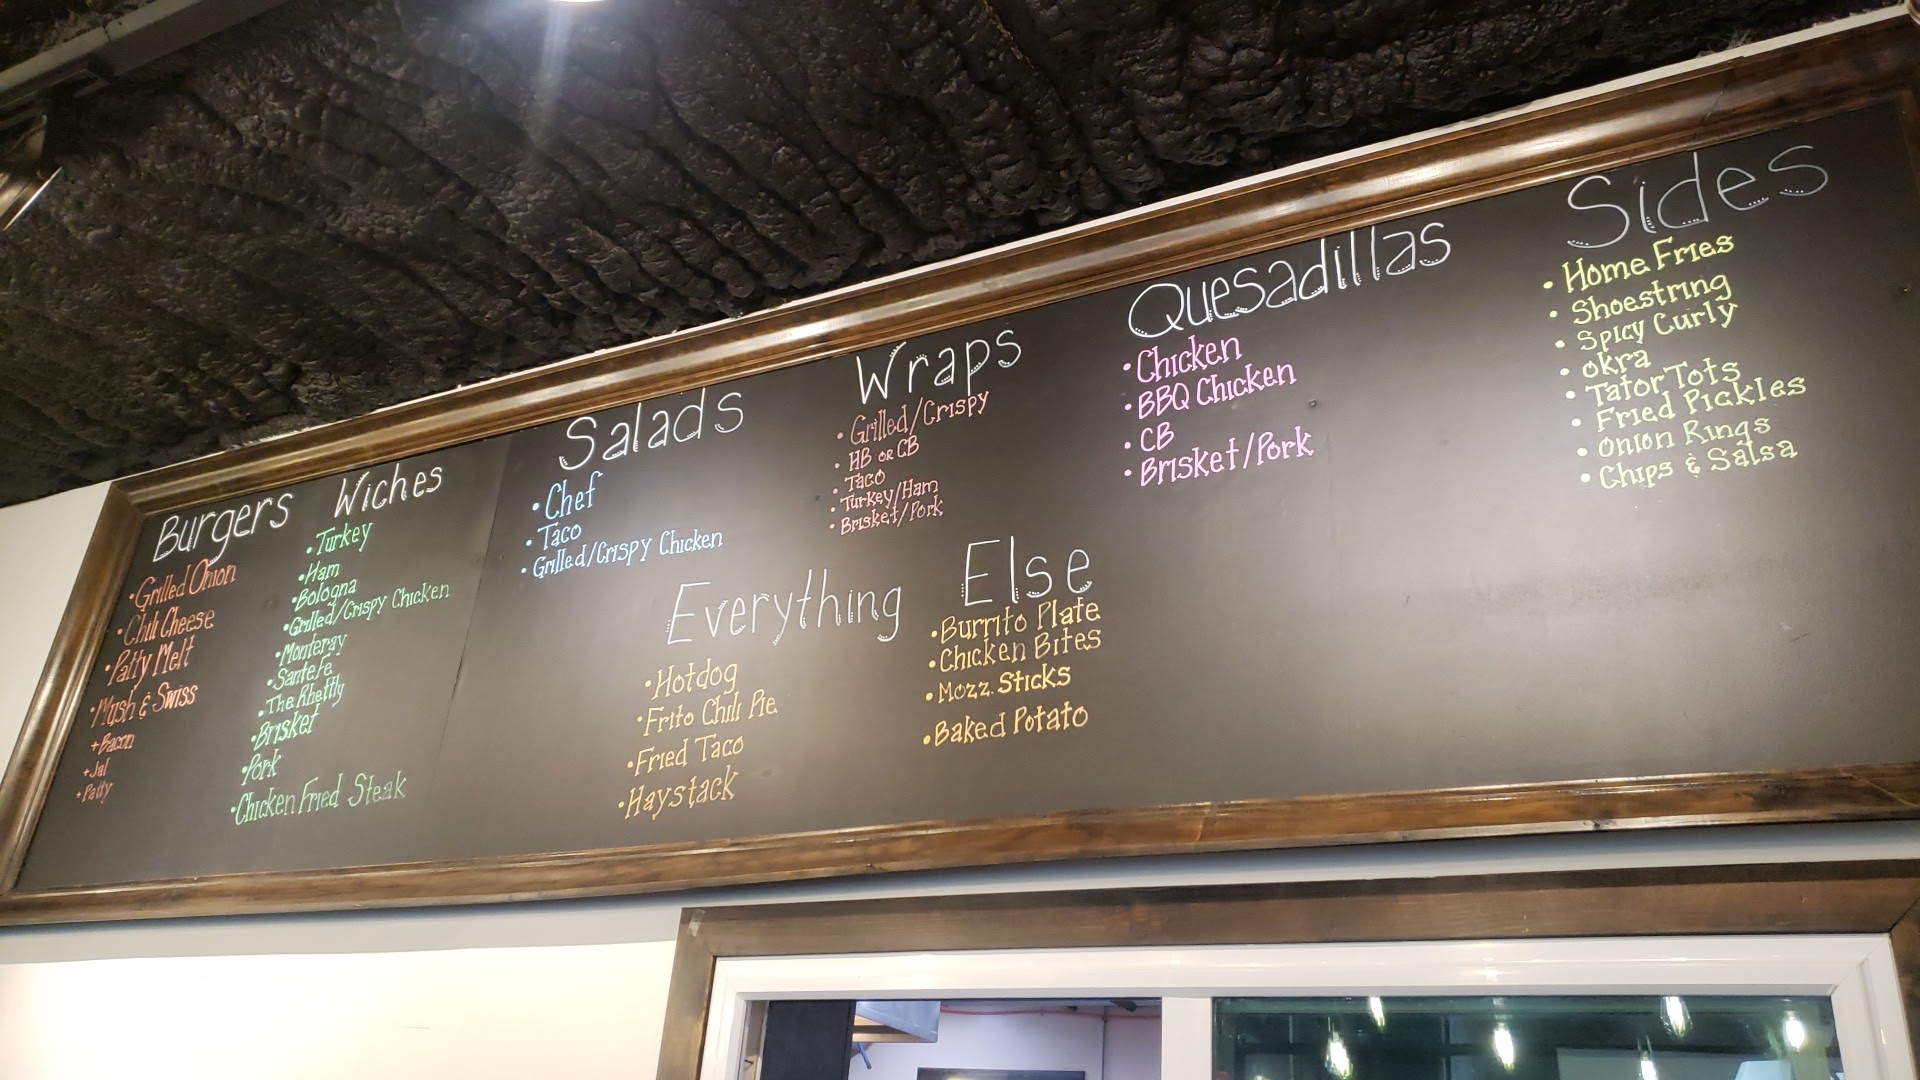 Burgers
• Grilled Onion
• Chili Cheese
• Patty Melt
• Mush & Swiss
+ Bacon
+ Jal
+ Patty
Wiches
• Turkey
• Ham
• Bologna
• Grilled/Crispy Chicken
• Monteray
• Sante Fe
• The Rheftly
• Brisket
• Pork
• Chicken Fried Steak
Salads
• Chef
• Taco
• Grilled/Crispy Chicken
Wraps
• Grilled/Crispy
• HB or CB
• Taco
• Turkey/Ham
• Brisket/Pork
Everything Else
• Hotdog
• Frito Chili Pie
• Fried Taco
• Haystack
• Burrito Plate
• Chicken Bites
• Mozz. Sticks
• Baked Potato
Quesadillas
• Chicken
• BBQ Chicken
• CB
• Brisket/Pork
Sides
• Home Fries
• Shoestring
• Spicy Curly
• Okra
• Tator Tots
• Fried Pickles
• Onion Rings
• Chips & Salsa